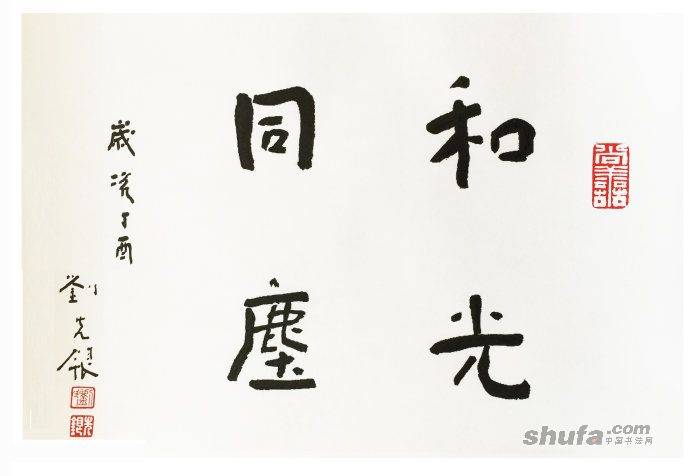 和光
同塵
歲次丁酉
劉先銀
shufa.com
中国书法网